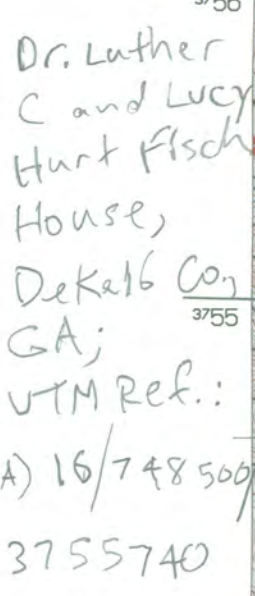 3756
Dr. Luther
C and Lucy
Hurt Fisch
House,
DeKalb Co.,
3755
GA;
UTM Ref.:
A) 16/748500/
3755740